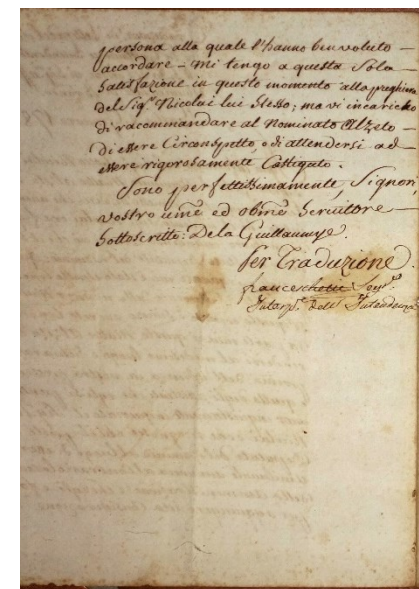 persona alla quale l'hanno ben voluto –
accordare – Mi tengo a questa Sola
Satisfazione in questo momento alla preghiera
del Sig.r Nicolai lui Stesso; ma vi incaricko
di raccommandare al Nominato Alzeto –
di essere Circonspetto, o di attendersi ad –
essere rigorosamente Castigato. –
Sono perfettissimamente, Signori,
vostro ume ed obme Servitore –
Sottoscritto: De la Guillaumye.
Per Traduzione.
franceschetti Seg.
Interp. dell' Intendenza